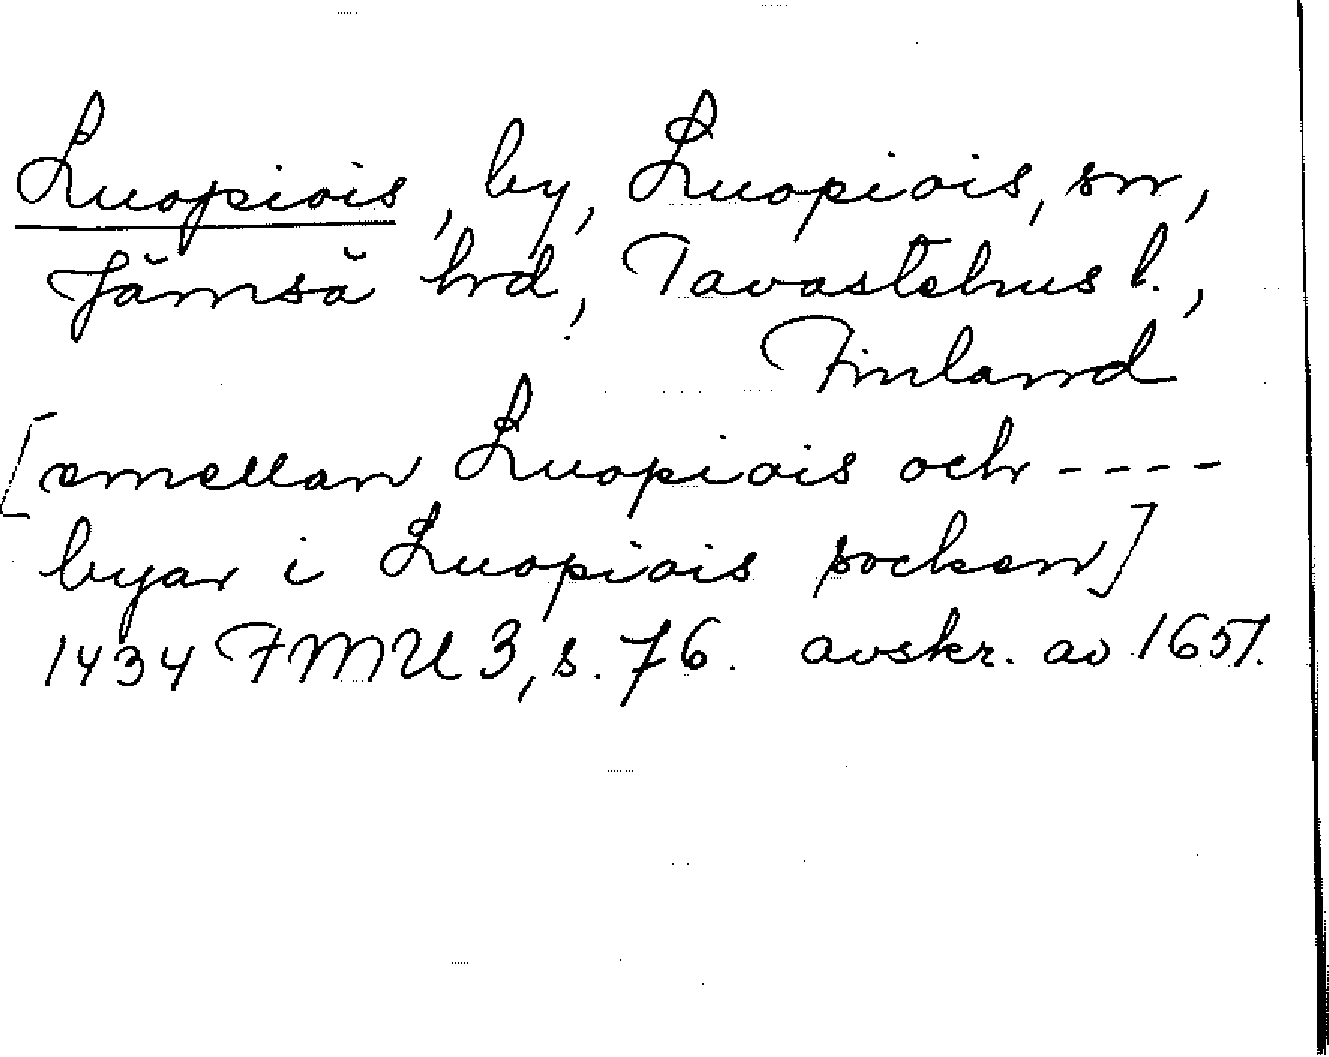 Luopiois, by, Luopiois, sn,
Jämsä hd, Tavastehus l.,
Finland
[emellan Luopiois och ----
byar i Luopiois socken]
1434 FMU 3, s. 76. avskr. av 1651.